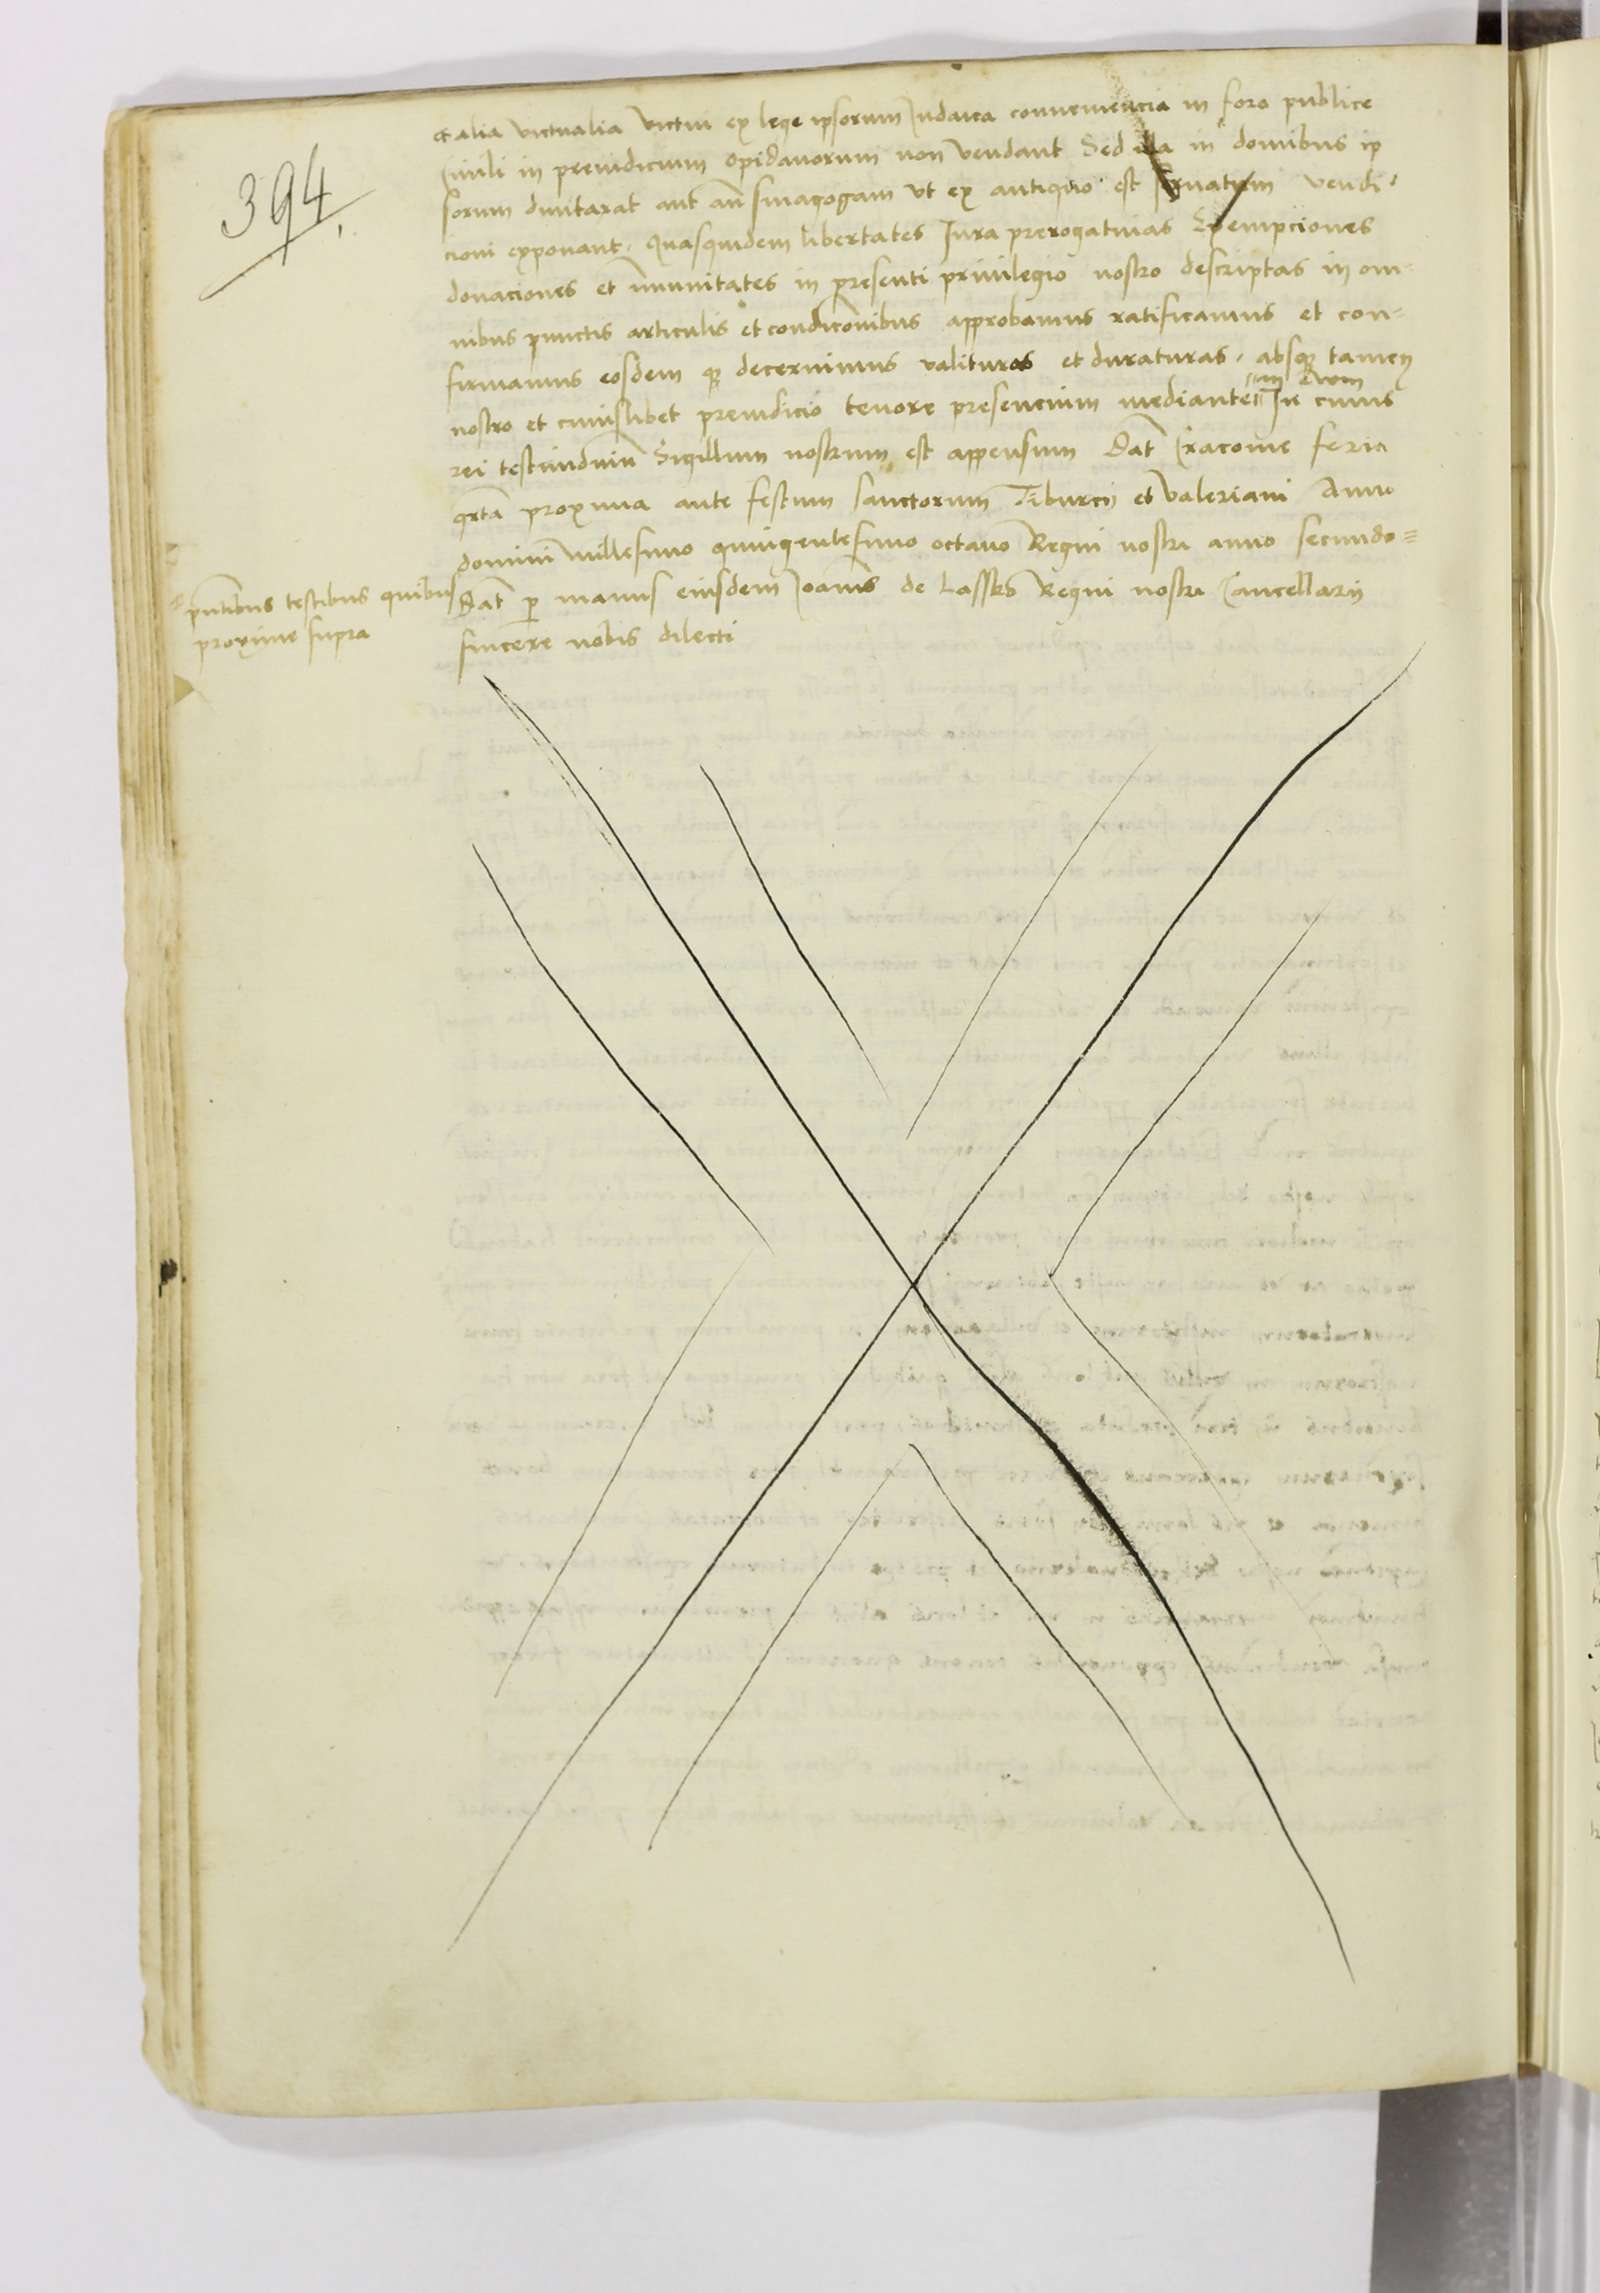 394
et alia victualia victui ex lege ipsorum Judaica conueniencia in foro publice
Ciuili in preiudicium opidanorum non vendant Sed illa in domibus ip
sorum duntaxat aut an̄ sinagogam vt ex antiquo est seruatum vendi-
cioni exponant. Quasquidem libertates Jura prerogatiuas Exempciones
donaciones et immunitates in presenti priuilegio nostro descriptas in om-
nibus punctis articulis et condicōnibus approbamus ratificamus et con-
firmamus eosdem q̃ decernimus valituras et duraturas, absq̃ tamen
nostro et cuiuslibet preiudicio tenore presencium mediante in euum In cuius
rei testimōniū Sigillum nostrum est appensum Dat̃ Cracouie feria
qrta proxima ante festum sanctorum Tiburcij et Valeriani Anno
domini Millesimo quingentesimo octauo Regni nostri anno secundo =
= pn̄tibus testibus quibus
proxime supra
Dat̃ p manus eiusdem Joānis de Lassko Regni nostri Cancellarij
sincere nobis dilecti